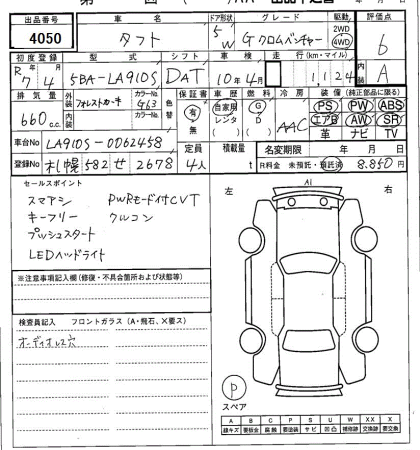 出品番号 車名 ドア形状 グレード 駆動 評価点
4050 タフト 5 W Gクロムベンチャー 2WD 4WD 6
初度登録 型式 シフト 車検 走行(km・マイル) 内装
R7年4月 5BA-LA910S DAT 10年4月 1,124 A
排気量 外装 フォレストカーキ カラーNo. G63 色替 保証書 車歴 燃料 冷房 装備(純正部品に限る)
660c.c. 内装 カラーNo. 有 無 自家用 レンタ G D AAC PS PW ABS
エアB AW SR
革 ナビ TV
車台No LA910S-0062458 定員 積載量 名変期限 年 月 日
登録No 札幌582せ2678 4人 t R料金 未預託・預託済 8,850円
セールスポイント
スマアシ PWRモード付CVT
キーフリー クルコン
プッシュスタート
LEDヘッドライト
※注意事項記入欄(修復・不具合箇所および状態等)
検査員記入 フロントガラス(A・飛石、X要ス)
オーディオレス穴
左 Ai 右
P
スペア
A B C P S U W X XX X
線キズ 要板金 腐蝕 要塗装 サビ 凹凸 補修跡 交換跡 要交換